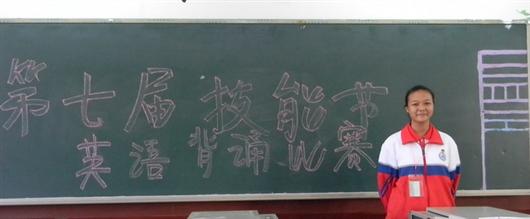 第七届技能节
英语背诵比赛